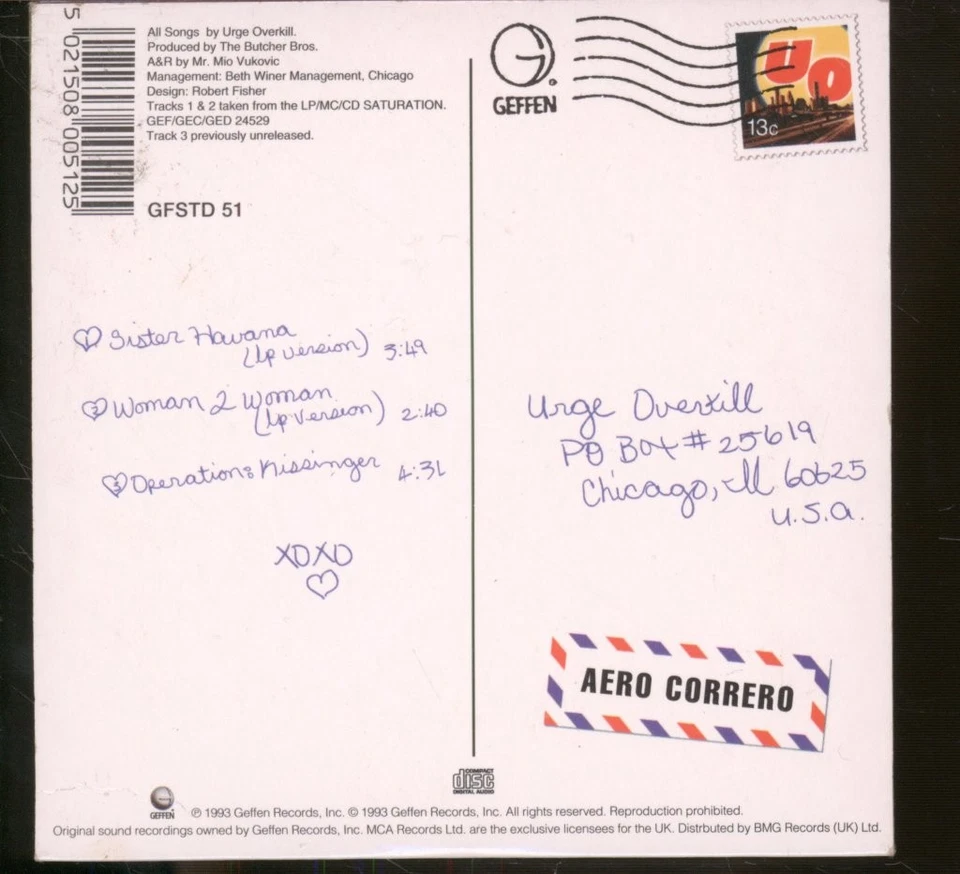 5 021508 005125
All Songs by Urge Overkill.
Produced by The Butcher Bros.
A&R by Mr. Mio Vukovic
Management: Beth Winer Management, Chicago
Design: Robert Fisher
Tracks 1 & 2 taken from the LP/MC/CD SATURATION.
GEF/GEC/GED 24529
Track 3 previously unreleased.
GFSTD 51
G
GEFFEN
UO
13c
1 Sister Havana
(lp version) 3:49
2 Woman 2 Woman
(lp version) 2:40
3 Operation: Kissinger 4:31
XOXO
Urge Overkill
PO Box # 25619
Chicago, Il 60625
U.S.A.
AERO CORRERO
COMPACT
disc
DIGITAL AUDIO
GEFFEN
℗ 1993 Geffen Records, Inc. © 1993 Geffen Records, Inc. All rights reserved. Reproduction prohibited.
Original sound recordings owned by Geffen Records, Inc. MCA Records Ltd. are the exclusive licensees for the UK. Distrbuted by BMG Records (UK) Ltd.